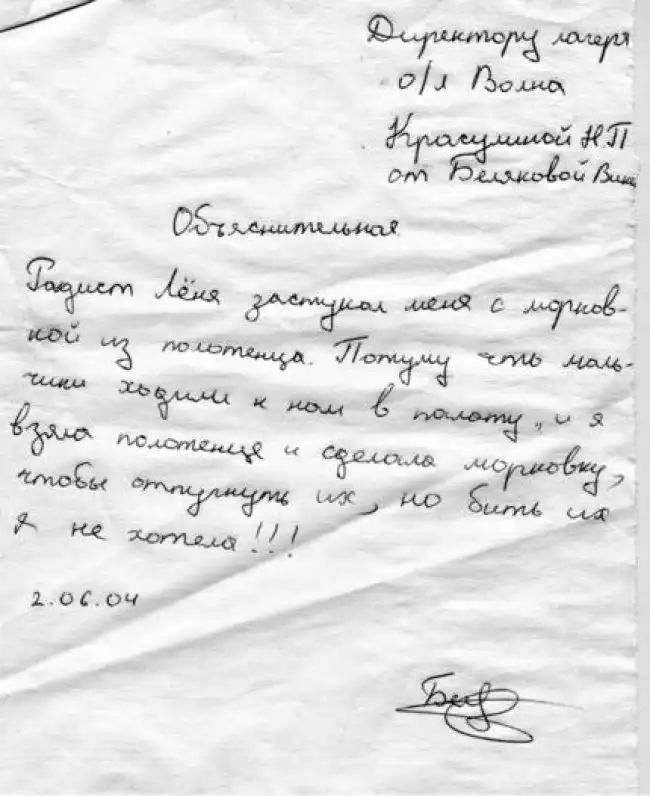 Директору лагеря
о/л Волна
Красулиной НП
от Беляковой Вики
Объяснительная
Радист Лёня застукал меня с морков-
кой из полотенца. Потуму чть маль-
чики ходили к нам в палату, и я
взяла полотенце и сделала морковку,
чтобы отпугнуть их, но бить их
я не хотела!!!
2.06.04